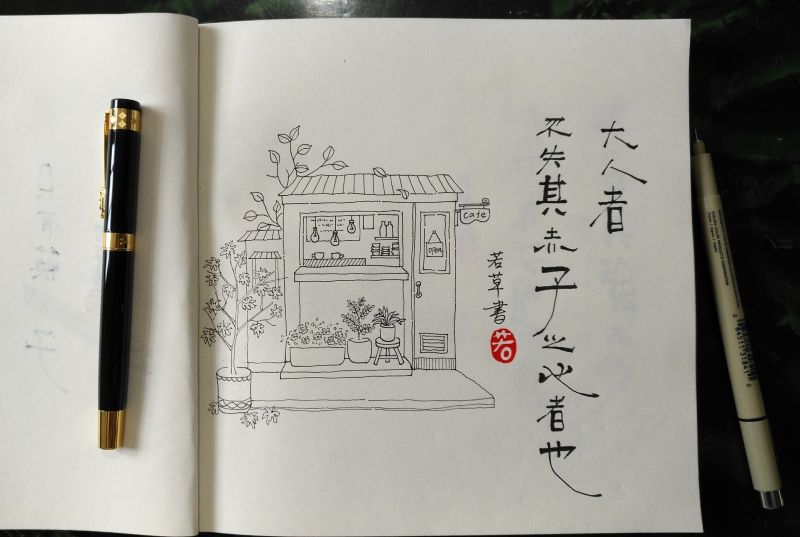 大人者
不失其赤子之心者也
若草書
若
cafe
OPEN